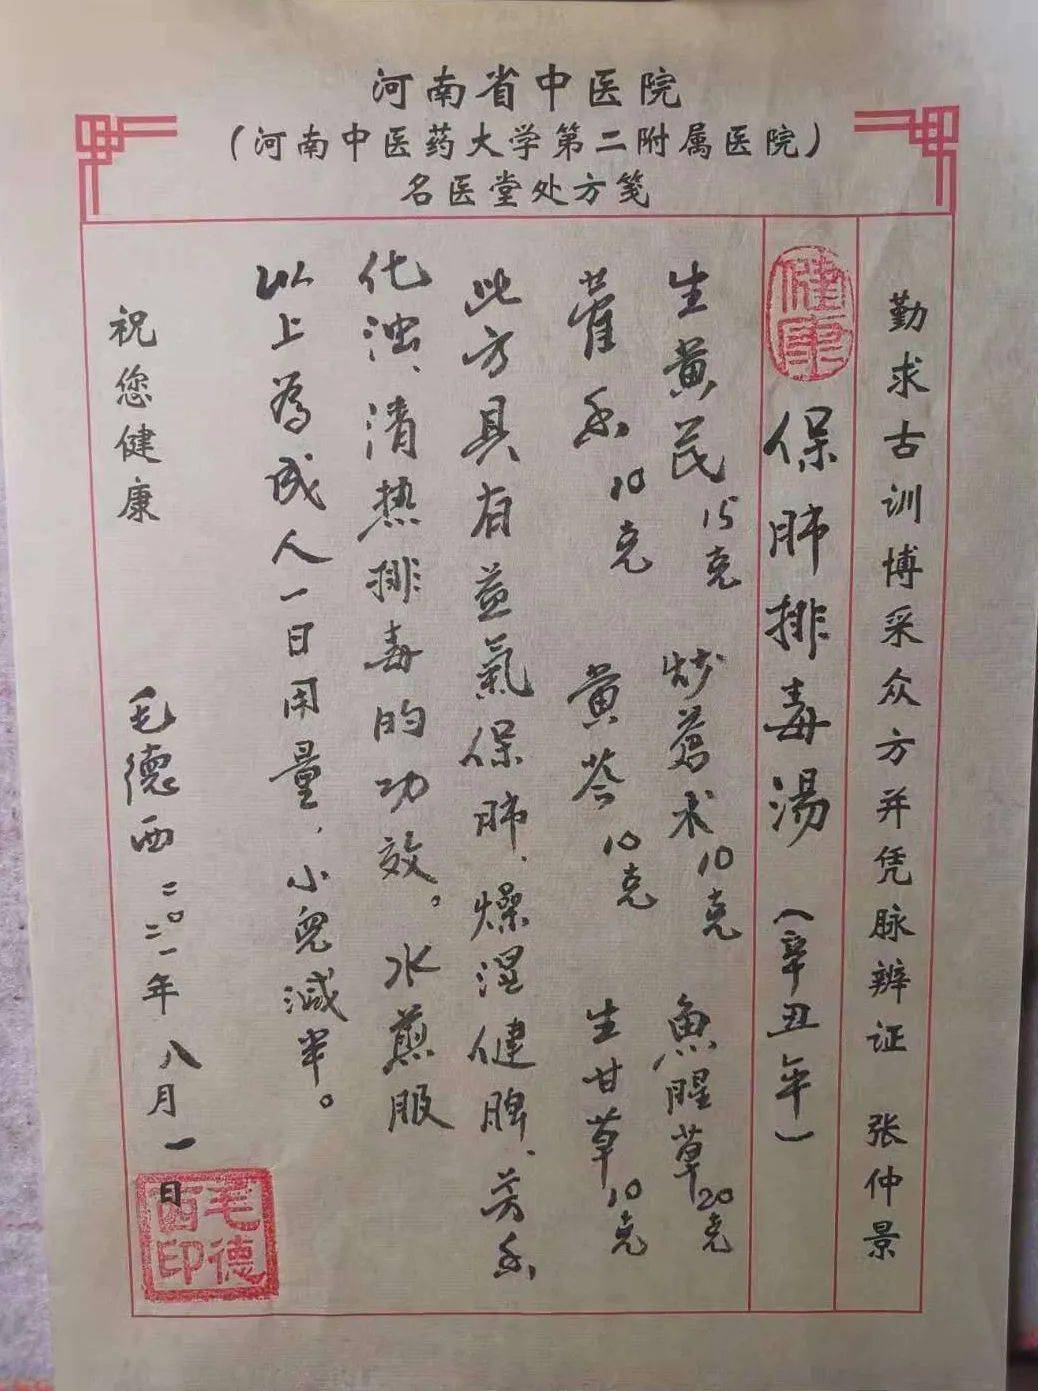 河南省中医院
（河南中医药大学第二附属医院）
名医堂处方笺
勤求古训博采众方并凭脉辨证 张仲景
健康
保肺排毒湯（辛丑年）
生黄芪15克 炒蒼术10克 魚腥草20克
藿香10克 黄芩10克 生甘草10克
此方具有益氣保肺、燥湿健脾、芳香
化浊、清热排毒的功效。水煎服
以上為成人一日用量，小兒減半。
祝您健康 毛德西 二〇二一年八月一日
毛德西印